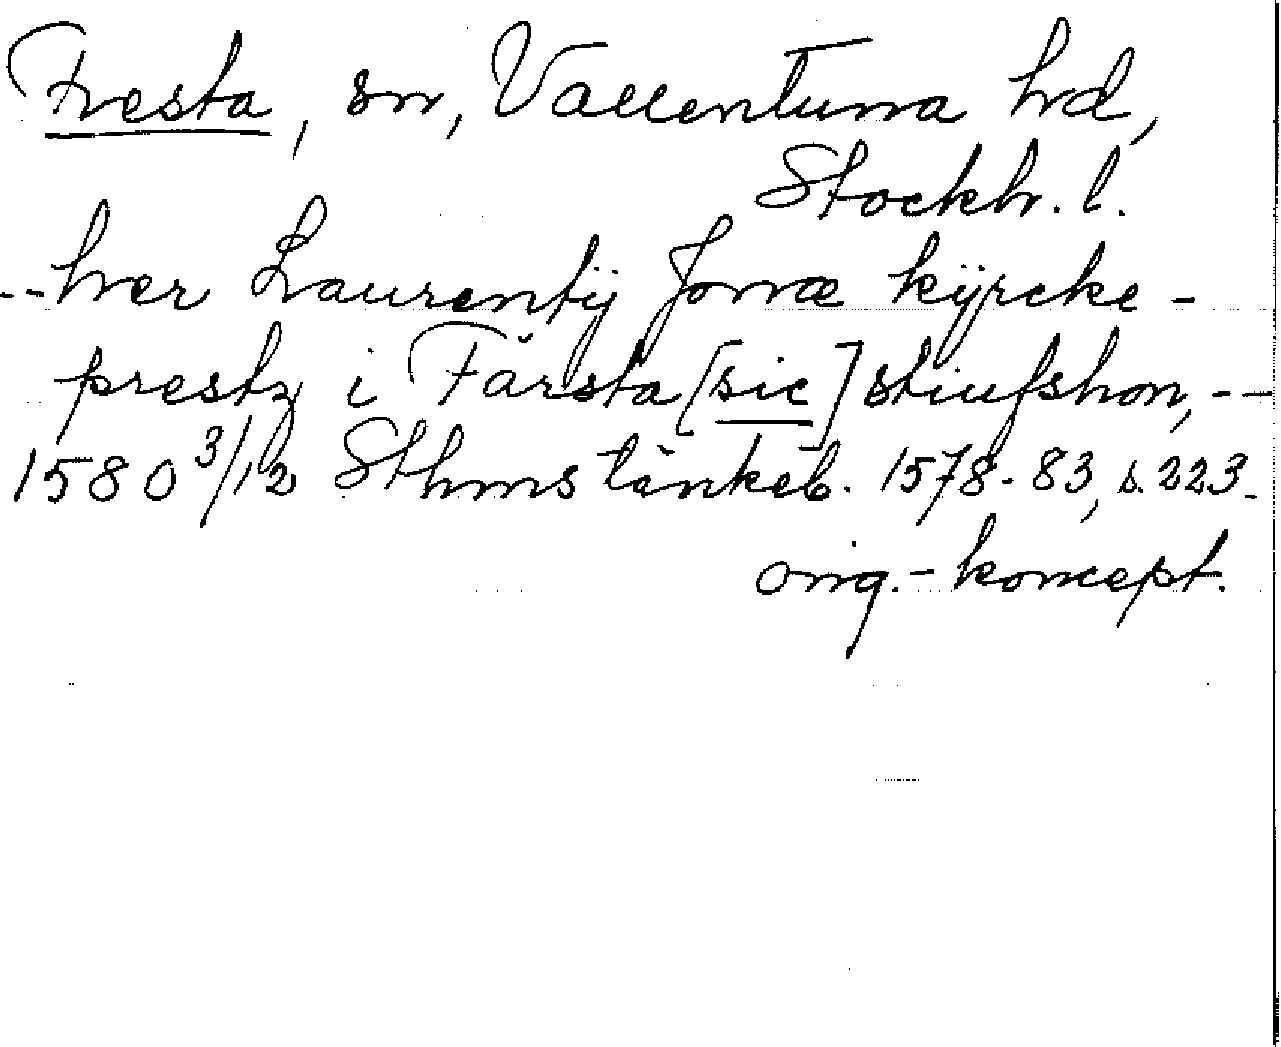 Fresta, sn, Vallentuna hd,
Stockh. l.
--her Laurentij Jonæ kÿrcke-
prestz i Färsta [sic] stiufshon, --
1580 3/12 Sthms tänkeb. 1578-83, s. 223.
orig.-koncept.